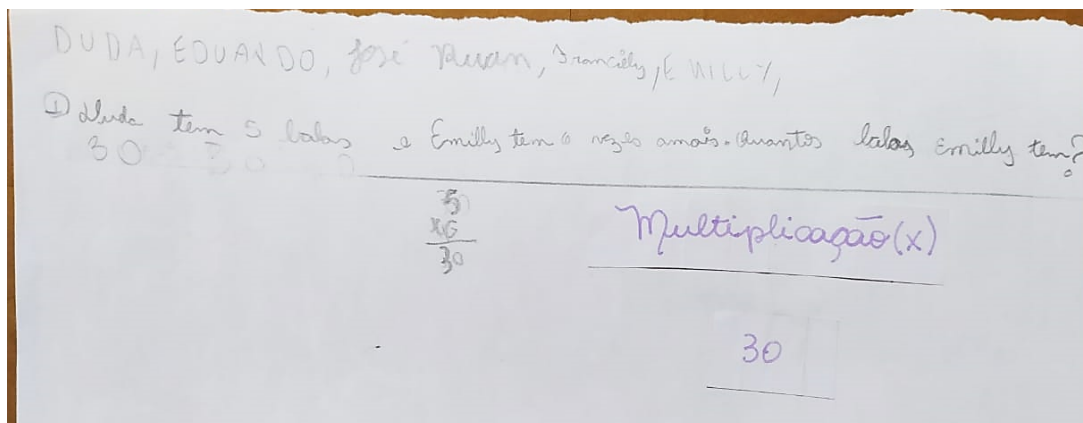 DUDA, EDUARDO, José Ruan, Francilly, EMILLY,
① Duda tem 5 balas e Emilly tem 6 vezes amais. Quantos balas Emilly tem?
30 30
5
x6
30
Multiplicação (x)
30